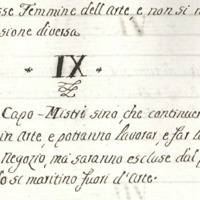 sse Femmine dell'arte, e non si m
sione diversa.
IX
Capo-Mistri sino, che continuer
in Arte, e potranno lavorar e far l
Negozio, ma saranno escluse dal
do si maritino fuori d'Arte.